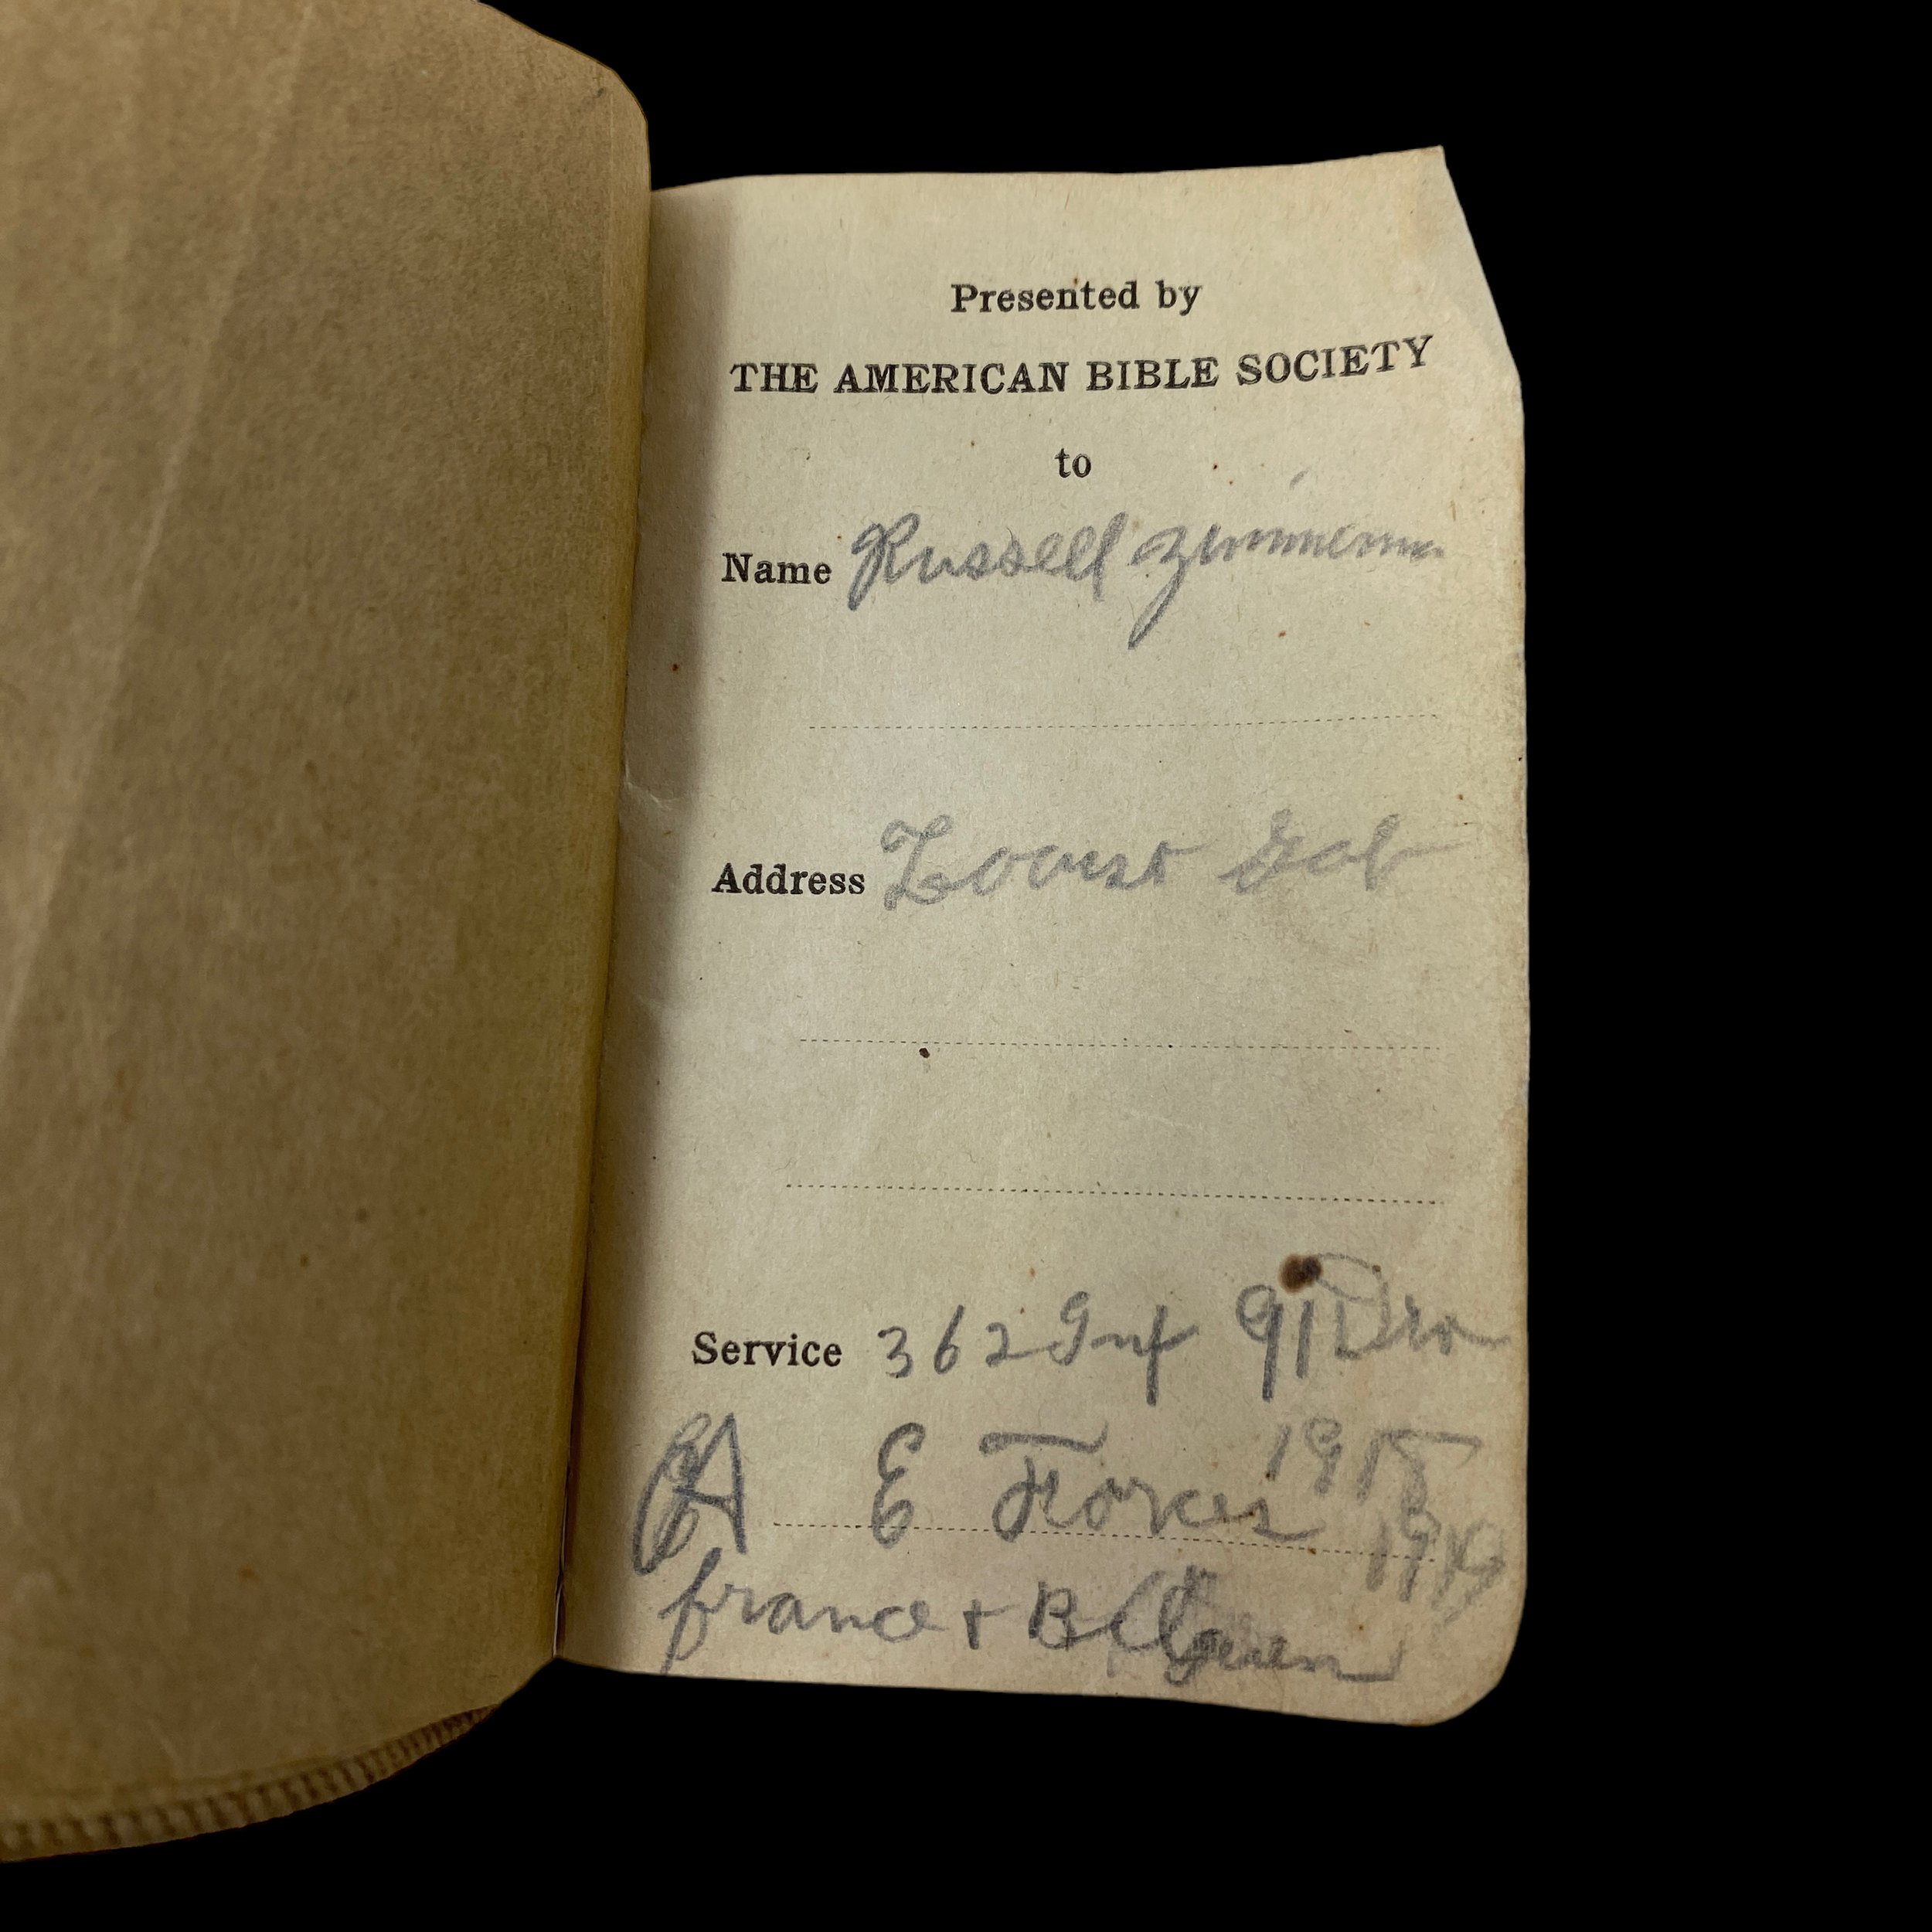 Presented by
THE AMERICAN BIBLE SOCIETY
to
Name Russell Zimmerman
Address Locust
Service 362 Inf 91 Div
A E Forces 1918
1919
france + Belguem